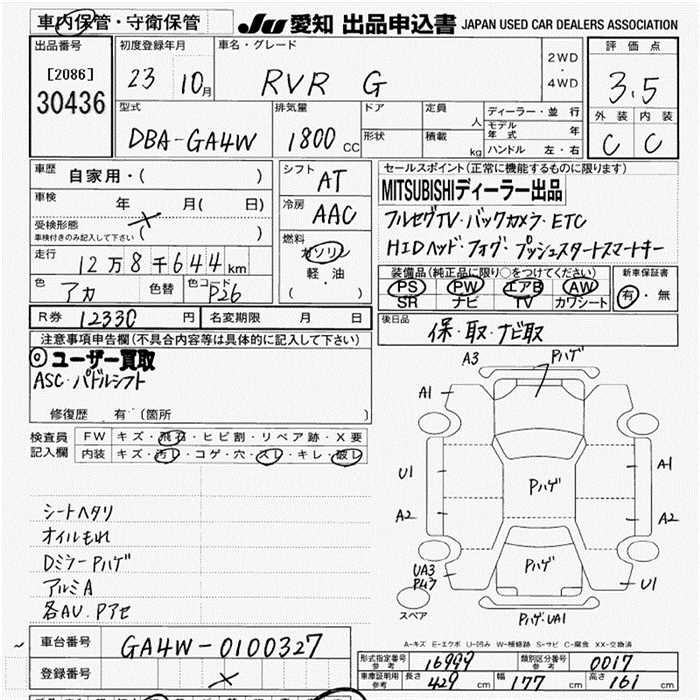 車内保管・守衛保管 JU 愛知 出品申込書 JAPAN USED CAR DEALERS ASSOCIATION
出品番号 [2086] 30436
初度登録年月 23 10月
車名・グレード RVR G 2WD・4WD
評価点 3.5
外装 内装 C C
型式 DBA-GA4W
排気量 1800 CC
ドア 定員 人
形状 積載 kg
ディーラー・並行
モデル年式 年
ハンドル 左・右
車歴 自家用・( )
車検 年 月( 日)
受検形態 ( )
車検付きのみ記入して下さい
走行 12万8千644km
色 アカ 色替 色コード P26
シフト AT
冷房 AAC
燃料 ガソリン 軽・油 ( )
セールスポイント(正常に機能するものに限ります)
MITSUBISHIディーラー出品
フルセグTV・バックカメラ・ETC
HIDヘッド・フォグ・プッシュスタートスマートキー
装備品(純正品に限り○をつけてください) 新車保証書
PS PW エアB AW 有・無
SR ナビ TV カワシート
R券 12330 円 名変期限 月 日
後日品 保・取・ナビ取
注意事項申告欄(不具合内容等は具体的に記入して下さい)
◎ユーザー買取
ASC・パドルシフト
修復歴 有(箇所 )
検査員記入欄 FW キズ・飛石・ヒビ割・リペア跡・X要
内装 キズ・汚レ・コゲ・穴・スレ・キレ・破レ
シートヘタリ
オイルもれ
Dミラー Pハゲ
アルミA
各AU.Pアセ
A3 Pハゲ
A1
U1 Pハゲ A1
A2 A2
UA3 Pハゲ
P47 U1
スペア Pハゲ・UA1
A-キズ E-エクボ U-凹み W-補修跡 S-サビ C-腐食 XX-交換済
車台番号 GA4W-0100327
登録番号
形式指定番号 参考 16999 類別区分番号 参考 0017
車庫証明用 参考 長さ 429 cm 幅 177 cm 高さ 161 cm